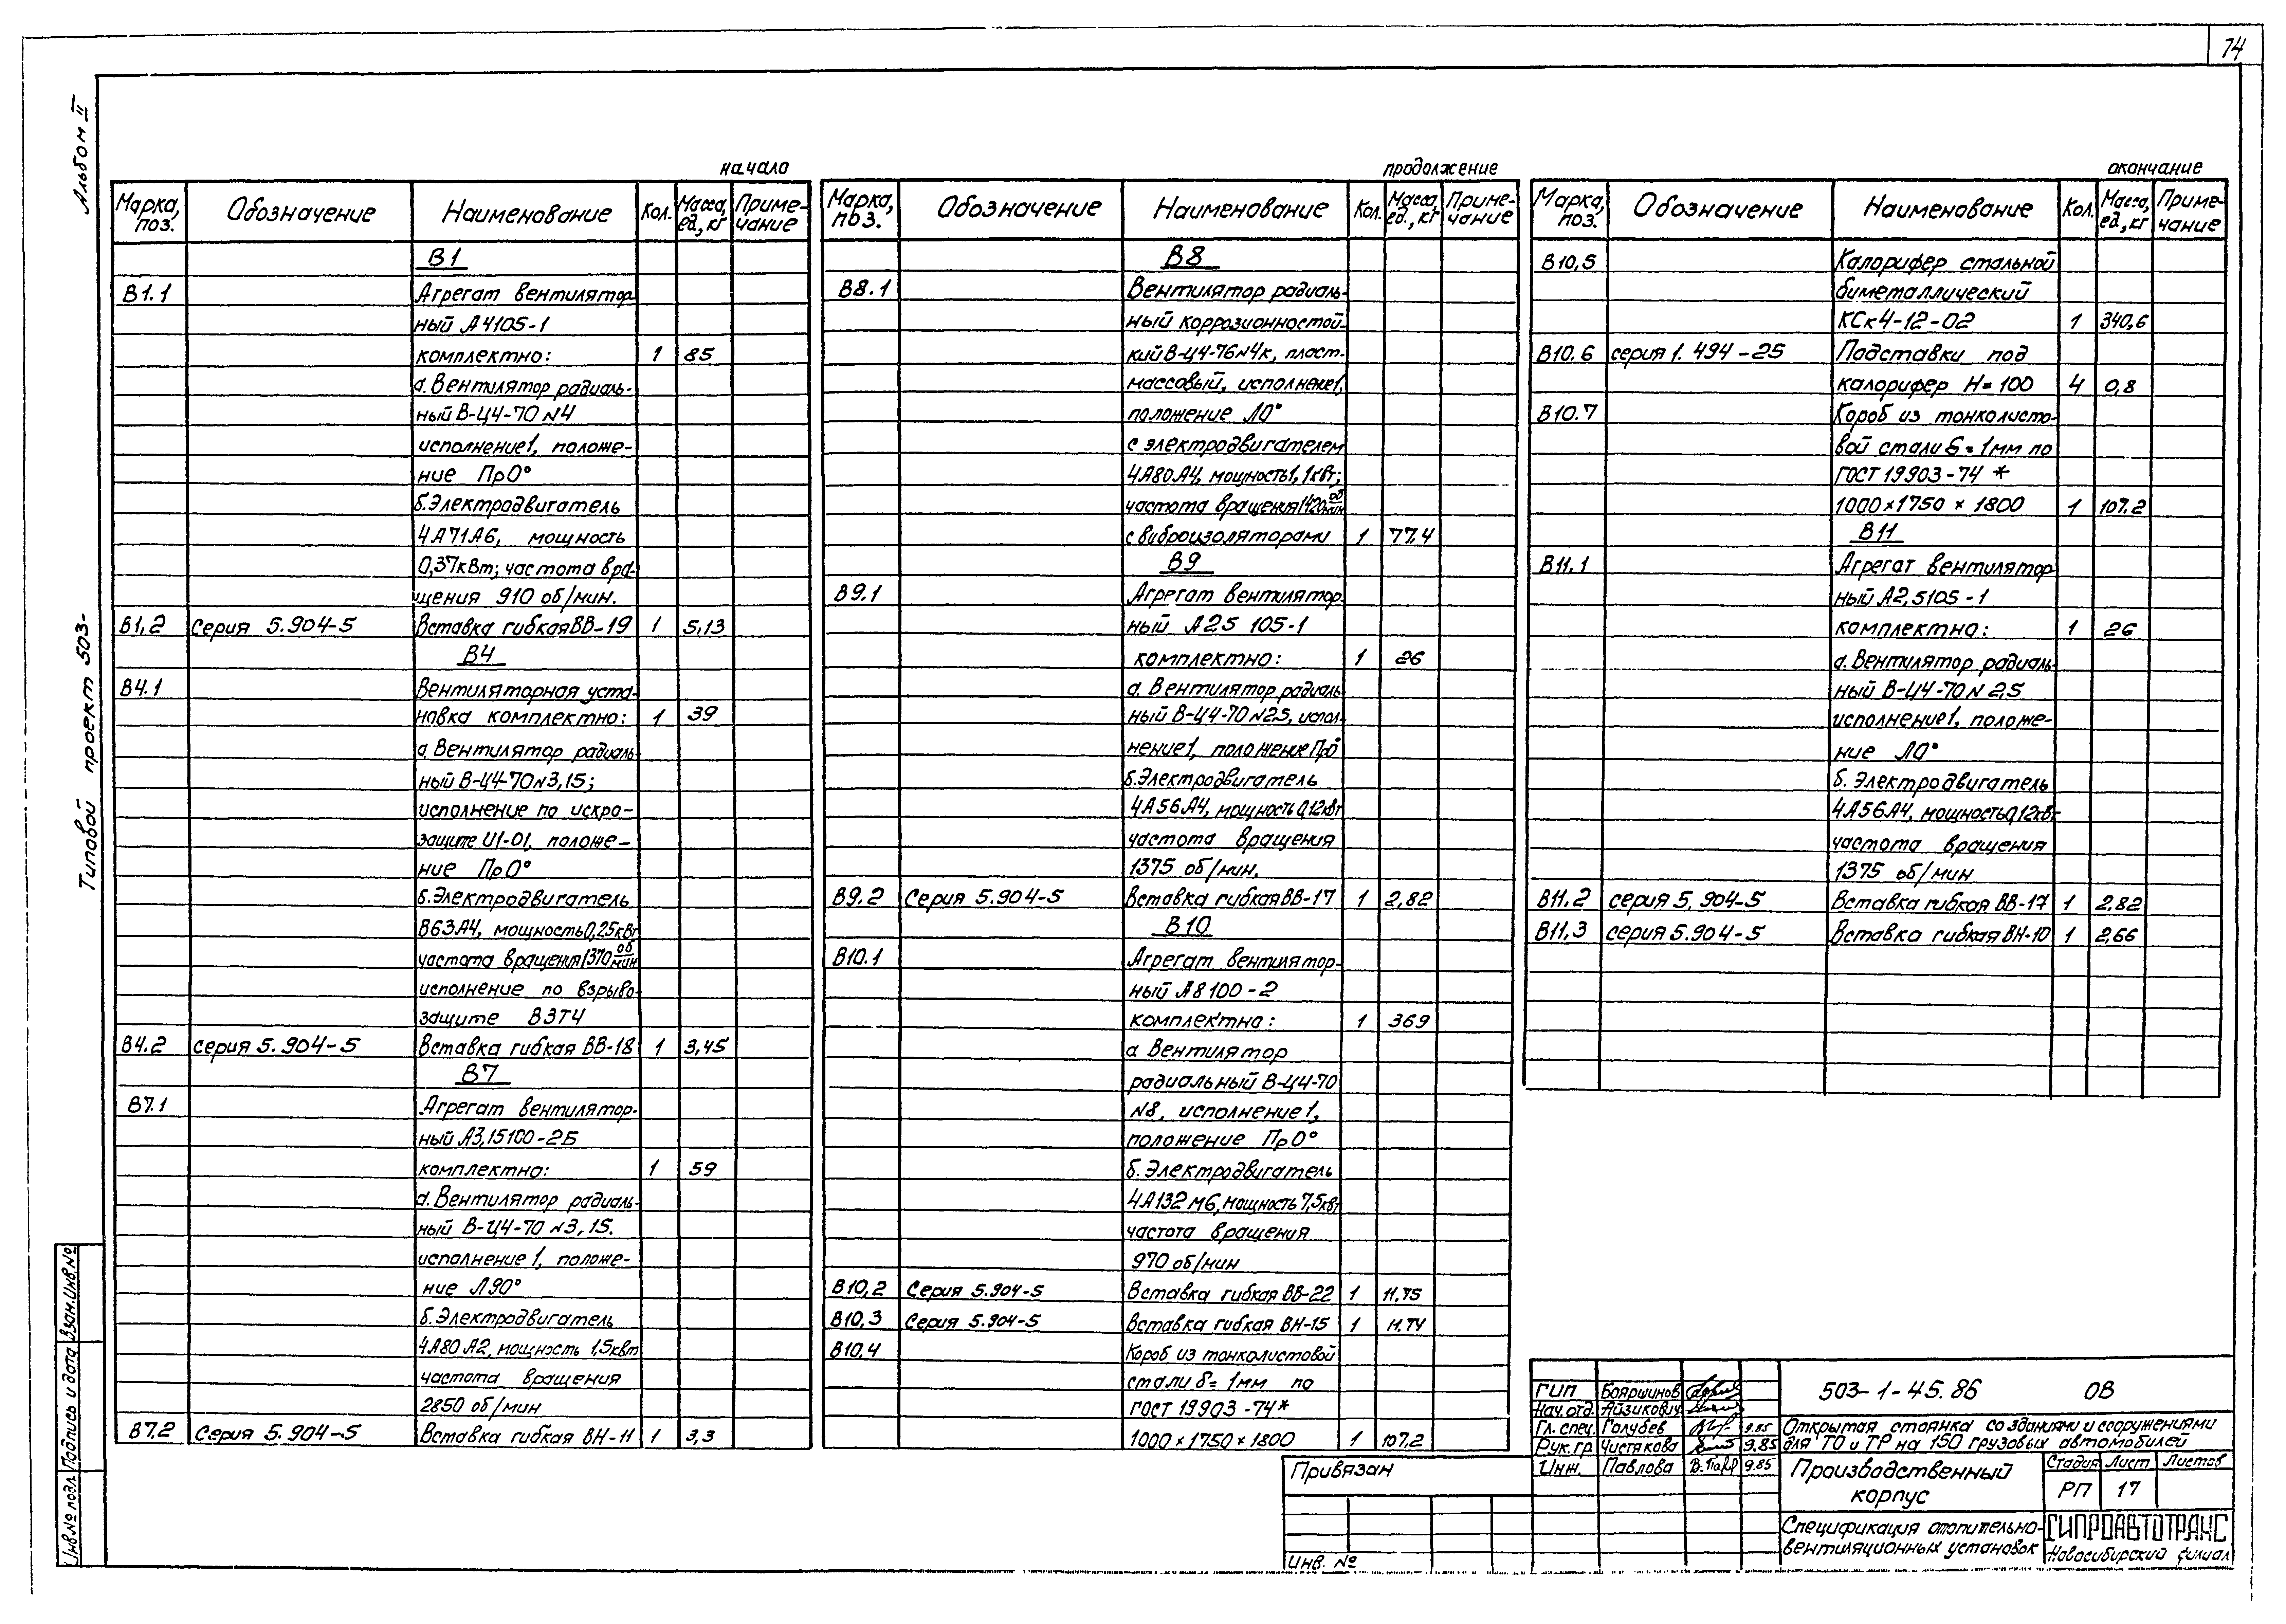 74
Альбом II
Типовой проект 503-
начало
Марка, поз. Обозначение Наименование Кол. Масса, ед., кг Приме-чание
В1
В1.1 Агрегат вентилятор-
ный А4105-1
комплектно: 1 85
а. Вентилятор радиаль-
ный В-Ц4-70 N4
исполнение 1, положе-
ние Пр0°
б. Электродвигатель
4А71А6, мощность
0,37кВт; частота вра-
щения 910 об/мин.
В1,2 Серия 5.904-5 Вставка гибкая ВВ-19 1 5,13
В4
В4.1 Вентиляторная уста-
новка комплектно: 1 39
а. Вентилятор радиаль-
ный В-Ц4-70 N3,15;
исполнение по искро-
защите И1-01, положе-
ние Пр0°
б. Электродвигатель
В63А4, мощность 0,25кВт
частота вращения 1370 об/мин
исполнение по взрыво-
защите В3Т4
В4.2 серия 5.904-5 Вставка гибкая ВВ-18 1 3,45
В7
В7.1 Агрегат вентилятор-
ный А3,15100-2Б
комплектно: 1 59
а. Вентилятор радиаль-
ный В-Ц4-70 N3,15.
исполнение 1, положе-
ние Л90°
б. Электродвигатель
4А80А2, мощность 1,5кВт
частота вращения
2850 об/мин
В7.2 Серия 5.904-5 Вставка гибкая ВН-11 1 3,3
продолжение
Марка, поз. Обозначение Наименование Кол. Масса, ед., кг Приме-чание
В8
В8.1 Вентилятор радиаль-
ный коррозионностой-
кий В-Ц4-76 N4к, пласт-
массовый, исполнение 1,
положение Л0°
с электродвигателем
4А80А4, мощность 1,1кВт;
частота вращения 1420 об/мин
с виброизоляторами 1 77.4
В9
В9.1 Агрегат вентилятор-
ный А25 105-1
комплектно: 1 26
а. Вентилятор радиаль-
ный В-Ц4-70 N2.5, испол-
нение 1, положение Пр0°
б. Электродвигатель
4А56А4, мощность 0,12кВт
частота вращения
1375 об/мин.
В9.2 Серия 5.904-5 Вставка гибкая ВВ-17 1 2,82
В10
В10.1 Агрегат вентилятор-
ный А8100-2
комплектно: 1 369
а Вентилятор
радиальный В-Ц4-70
N8, исполнение 1,
положение Пр0°
б. Электродвигатель
4А132М6, мощность 7,5кВт
частота вращения
970 об/мин
В10,2 Серия 5.904-5 Вставка гибкая ВВ-22 1 11.75
В10,3 Серия 5.904-5 Вставка гибкая ВН-15 1 11.74
В10,4 Короб из тонколистовой
стали δ=1мм по
ГОСТ 19903-74*
1000×1750×1800 1 107.2
окончание
Марка, поз. Обозначение Наименование Кол. Масса, ед., кг Приме-чание
В10,5 Калорифер стальной
биметаллический
КСк4-12-02 1 340,6
В10.6 серия 1.494-25 Подставки под
калорифер Н=100 4 0,8
В10.7 Короб из тонколисто-
вой стали δ=1мм по
ГОСТ 19903-74 *
1000×1750×1800 1 107.2
В11
В11.1 Агрегат вентилятор-
ный А2,5105-1
комплектно: 1 26
а. Вентилятор радиаль-
ный В-Ц4-70 N 2.5
исполнение 1, положе-
ние Л0°
б. Электродвигатель
4А56А4, мощность 0,12кВт
частота вращения
1375 об/мин
В11.2 серия 5.904-5 Вставка гибкая ВВ-17 1 2,82
В11,3 серия 5.904-5 Вставка гибкая ВН-10 1 2,66
ГИП Бояршинов
Нач. отд. Айзикович
Гл. спец. Голубев 9.85
Рук. гр. Чистякова 9.85
Инж. Павлова 9.85
503-1-45.86 ОВ
Открытая стоянка со зданиями и сооружениями
для ТО и ТР на 150 грузовых автомобилей
Производственный
корпус
Стадия Лист Листов
РП 17
Спецификация отопительно-
вентиляционных установок
ГИПРОАВТОТРАНС
Новосибирский филиал
Привязан
Инв. №
Инв.№ подл. Подпись и дата Взам.Инв.№